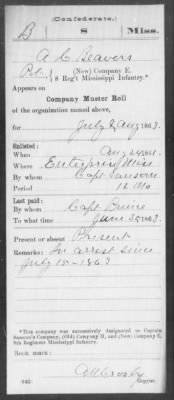 (Confederate.)
B 8 Miss.
A C Beavers
Pvt., (New) Company E,
8 Reg't Mississippi Infantry.*
Appears on
Company Muster Roll
of the organization named above,
for July & Aug, 1863.
Enlisted:
When Aug 24, 1861.
Where Enterprise Miss
By whom Capt
Period 12 Mo
Last paid:
By whom Capt
To what time June 30, 1863.
Present or absent Present
Remarks: In arrest since
July 15 - 1863
*This company was successively designated as Captain
Company, (Old) Company H, and (New) Company E,
8th Regiment Mississippi Infantry.
Book mark:
(642)
Copyist.